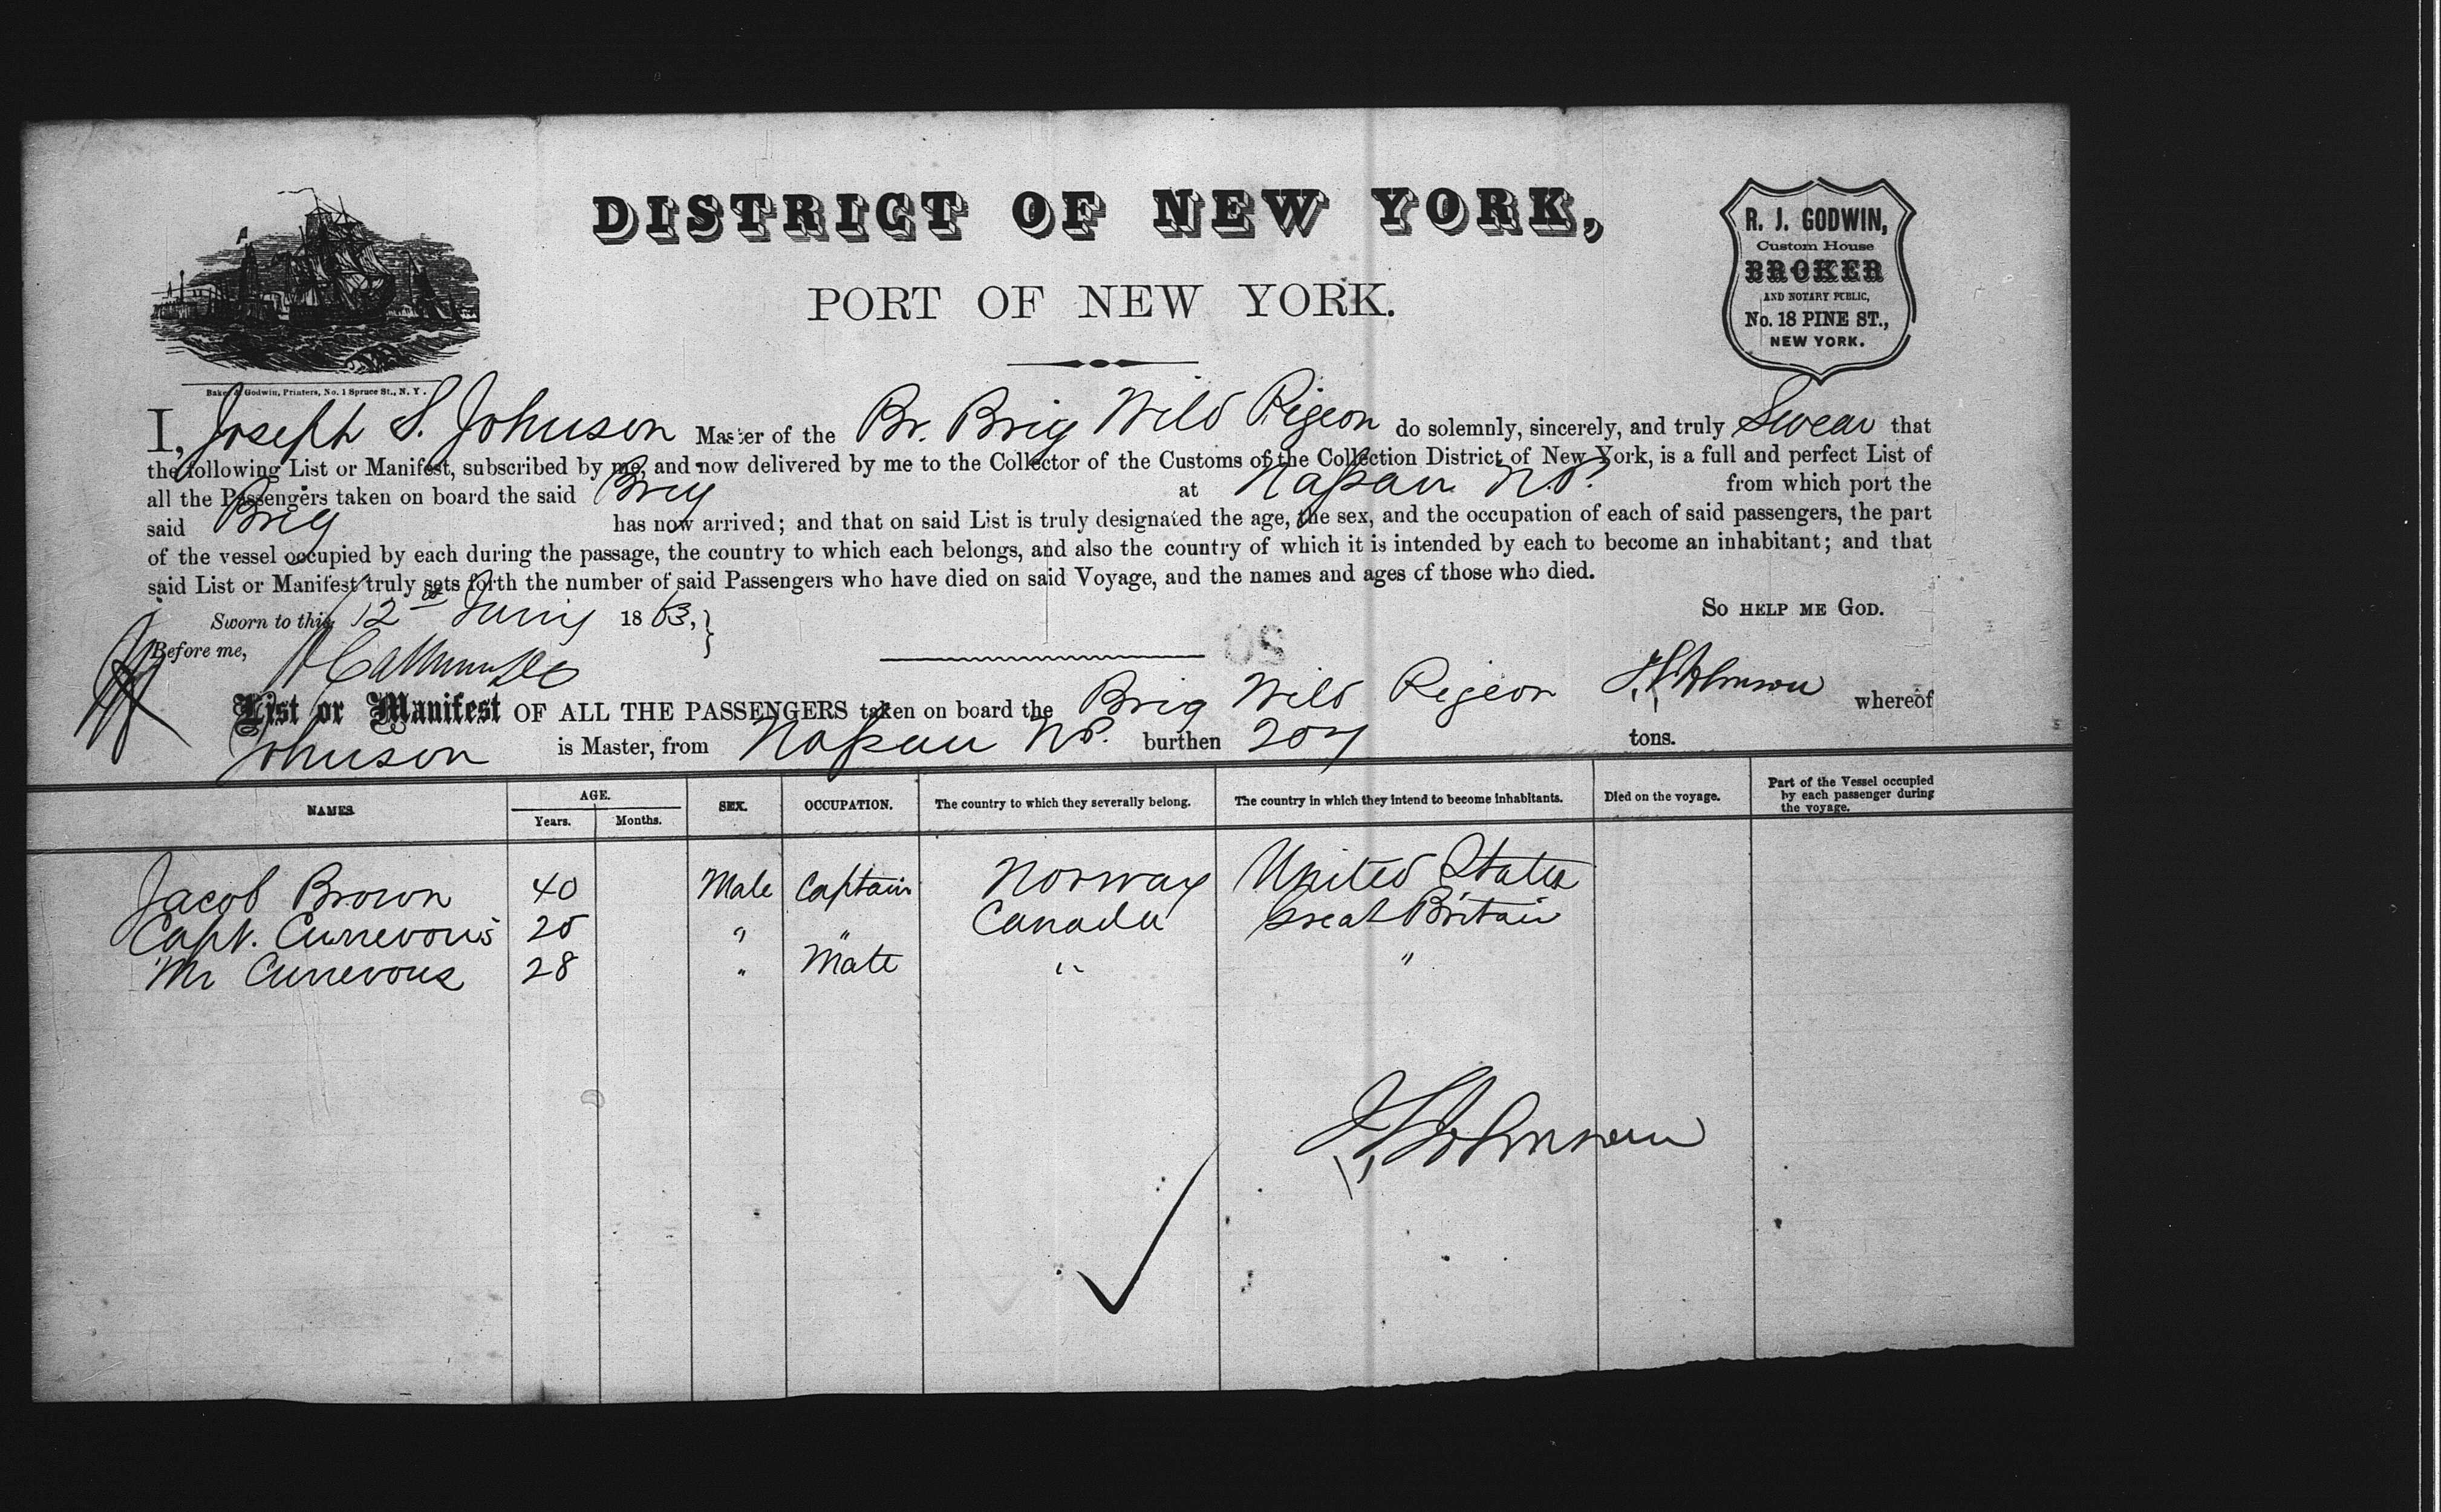 DISTRICT OF NEW YORK,
PORT OF NEW YORK.
R. J. GODWIN,
Custom House
BROKER
AND NOTARY PUBLIC,
No. 18 PINE ST.,
NEW YORK.
Baker & Godwin, Printers, No. 1 Spruce St., N. Y.
I, Joseph S. Johnson Master of the Br. Brig Wild Pigeon do solemnly, sincerely, and truly Swear that
the following List or Manifest, subscribed by me, and now delivered by me to the Collector of the Customs of the Collection District of New York, is a full and perfect List of
all the Passengers taken on board the said Brig at Nassau N.P. from which port the
said Brig has now arrived; and that on said List is truly designated the age, the sex, and the occupation of each of said passengers, the part
of the vessel occupied by each during the passage, the country to which each belongs, and also the country of which it is intended by each to become an inhabitant; and that
said List or Manifest truly sets forth the number of said Passengers who have died on said Voyage, and the names and ages of those who died.
SO HELP ME GOD.
Sworn to this 12 1863,
Before me,
20
J S Johnson
List or Manifest OF ALL THE PASSENGERS taken on board the Brig Wild Pigeon whereof
Johnson is Master, from Nassau N.P. burthen 207 tons.
NAMES AGE. Years. Months. SEX. OCCUPATION. The country to which they severally belong. The country in which they intend to become inhabitants. Died on the voyage. Part of the Vessel occupied by each passenger during the voyage.
Jacob Brown 40 Male Captain Norway United States
Capt. 25 " " Canada Great Britain
Mr 28 " Mate " "
J S Johnson